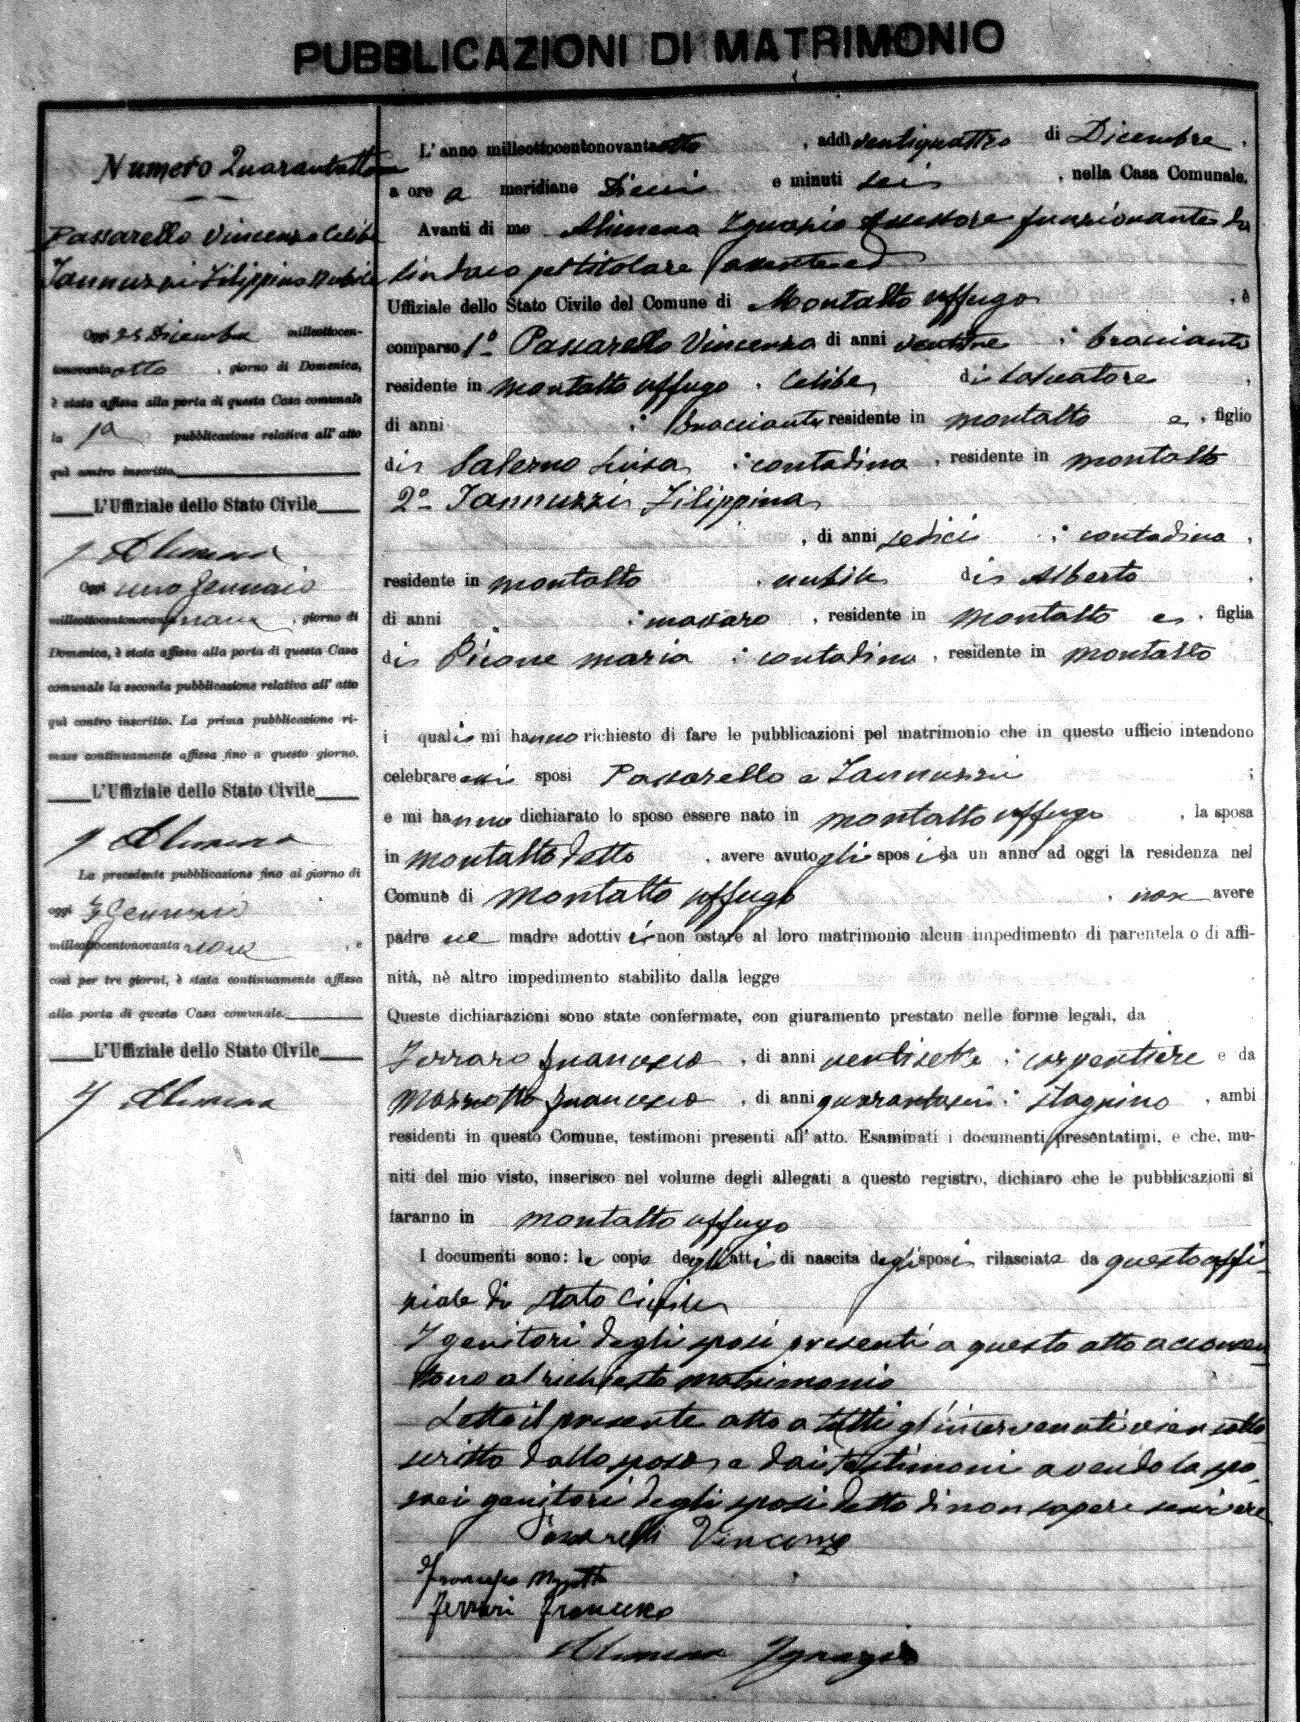 PUBBLICAZIONI DI MATRIMONIO
Numero Quarantotto
Passarello Vincenzo Celibe
Iannuzzi Filippina Nubile
Oggi 25 Dicembre milleottocen-
tonovantaotto, giorno di Domenica,
è stata affissa alla porta di questa Casa comunale
la 1a pubblicazione relativa all' atto
quì contro inscritto.
L'Uffiziale dello Stato Civile
Alimena
Oggi uno Gennaio
milleottocentonovantanove, giorno di
Domenica, è stata affissa alla porta di questa Casa
comunale la seconda pubblicazione relativa all' atto
quì contro inscritto. La prima pubblicazione ri-
mase continuamente affissa fino a questo giorno.
L'Uffiziale dello Stato Civile
Alimena
La precedente pubblicazione fino al giorno di
oggi Gennaio
milleottocentonovantanove, e
così per tre giorni, è stata continuamente affissa
alla porta di questa Casa comunale.
L'Uffiziale dello Stato Civile
Alimena
L' anno milleottocentonovantaotto, addì ventiquattro di Dicembre,
a ore a meridiane Dieci e minuti sei, nella Casa Comunale.
Avanti di me Alimena Ignazio Assessore funzionante da
Sindaco pel titolare assente ed
Uffiziale dello Stato Civile del Comune di Montalto uffugo, è
comparso 1o Passarello Vincenzo di anni ; bracciante
residente in montalto uffugo, Celibe, di Salvatore,
di anni ; bracciante residente in montalto e, figlio
di Salerno Luisa ; contadina, residente in montalto
2o Iannuzzi Filippina
, di anni sedici ; contadina,
residente in montalto, nubile di Alberto,
di anni ; massaro, residente in montalto e, figlia
di Picone maria ; contadina, residente in montalto
i quali mi hanno richiesto di fare le pubblicazioni pel matrimonio che in questo ufficio intendono
celebrare essi sposi Passarello e Iannuzzi ;
e mi hanno dichiarato lo sposo essere nato in montalto uffugo, la sposa
in montalto detto, avere avuto gli sposi da un anno ad oggi la residenza nel
Comune di montalto uffugo, non avere
padre ne madre adottivi non ostare al loro matrimonio alcun impedimento di parentela o di affi-
nità, nè altro impedimento stabilito dalla legge
Queste dichiarazioni sono state confermate, con giuramento prestato nelle forme legali, da
Ferraro Francesco, di anni ventisette ; carpentiere e da
Mazzotto Francesco, di anni quarantasei ; stagnino, ambi
residenti in questo Comune, testimoni presenti all' atto. Esaminati i documenti presentatimi, e che, mu-
niti del mio visto, inserisco nel volume degli allegati a questo registro, dichiaro che le pubblicazioni si
faranno in montalto uffugo
I documenti sono: le copie degli atti di nascita degli sposi rilasciate da questo uffi-
ziale di stato Civile
I genitori degli sposi presenti a questo atto acconsen
tono al richiesto matrimonio
Letto il presente atto a tutti gl'intervenuti vien sotto
scritto dallo sposo e dai testimoni avendo la spo
sa ei genitori degli sposi detto di non sapere scrivere
Passarelli Vincenzo
Francesco Mazzotta
Ferrari Francesco
Alimena Ignazio